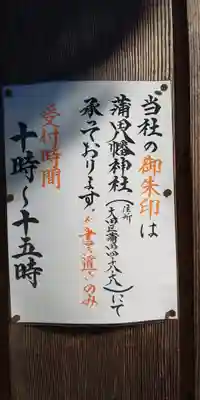 当社の御朱印は
蒲田八幡神社(住所 大田区蒲田)にて
承っております。※書置きのみ
受付時間
十時〜十五時